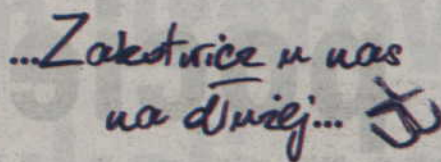 ...Zakotwicz u nas
na dłużej...